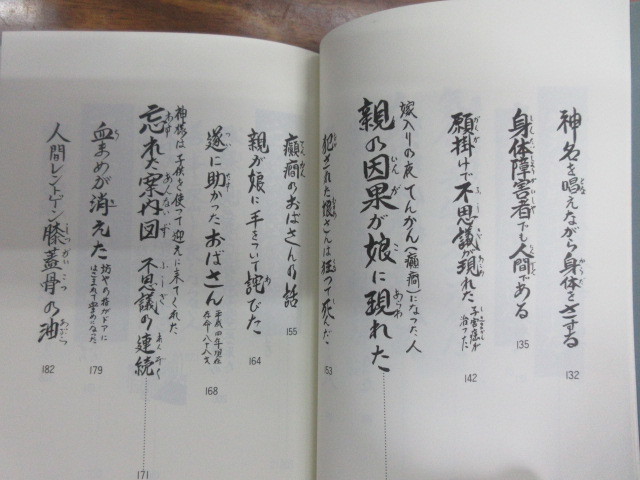 神名を唱えながら身体をさする
132
身体障害者でも人間である
135
願掛けで不思議が現れた 子宮癌が治った
142
嫁入りの夜 てんかん(癲癇)になった人
親の因果が娘に現れた
犯された娘さんは狂って死んだ
153
癲癇のおばさんの話
155
親が娘に手をついて詫びた
164
遂に助かったおばさん 平成四年現在 在命・八十八才
168
神様は子供を使って迎えに来てくれた
忘れた案内図 不思議の連続
171
血まめが消えた 坊やの指がドアに はさまれて血まめになった
179
人間レントゲン 膝蓋骨の油
182